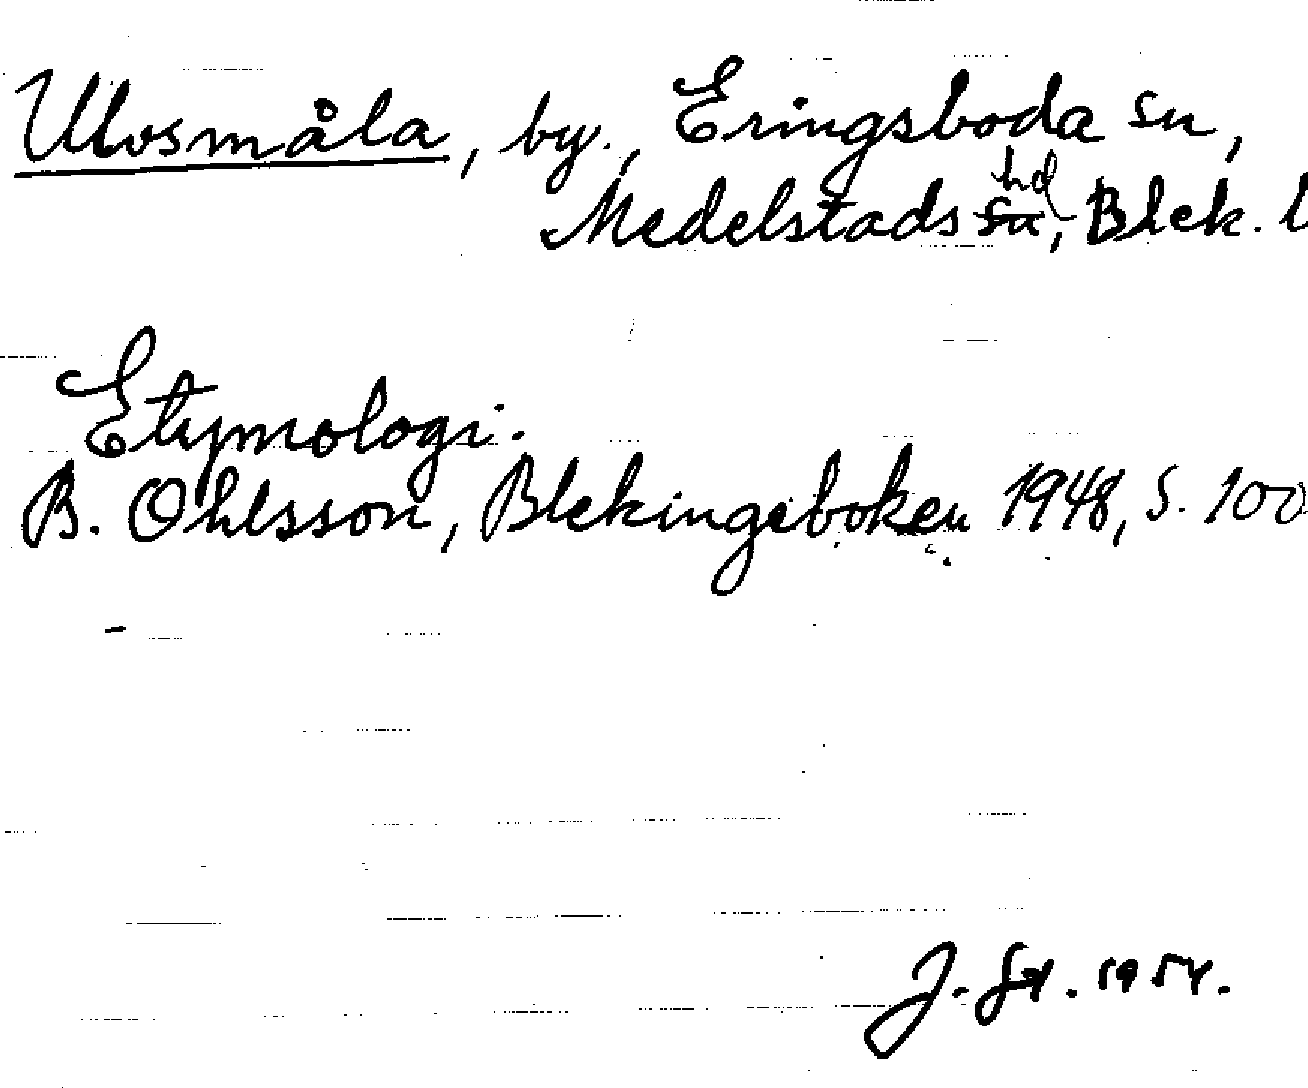 Ulvsmåla, by., Eringsboda sn,
Medelstads hd, Blek. l
Etymologi.
B. Ohlsson, Blekingeboken 1948, S. 100
J. 1954.